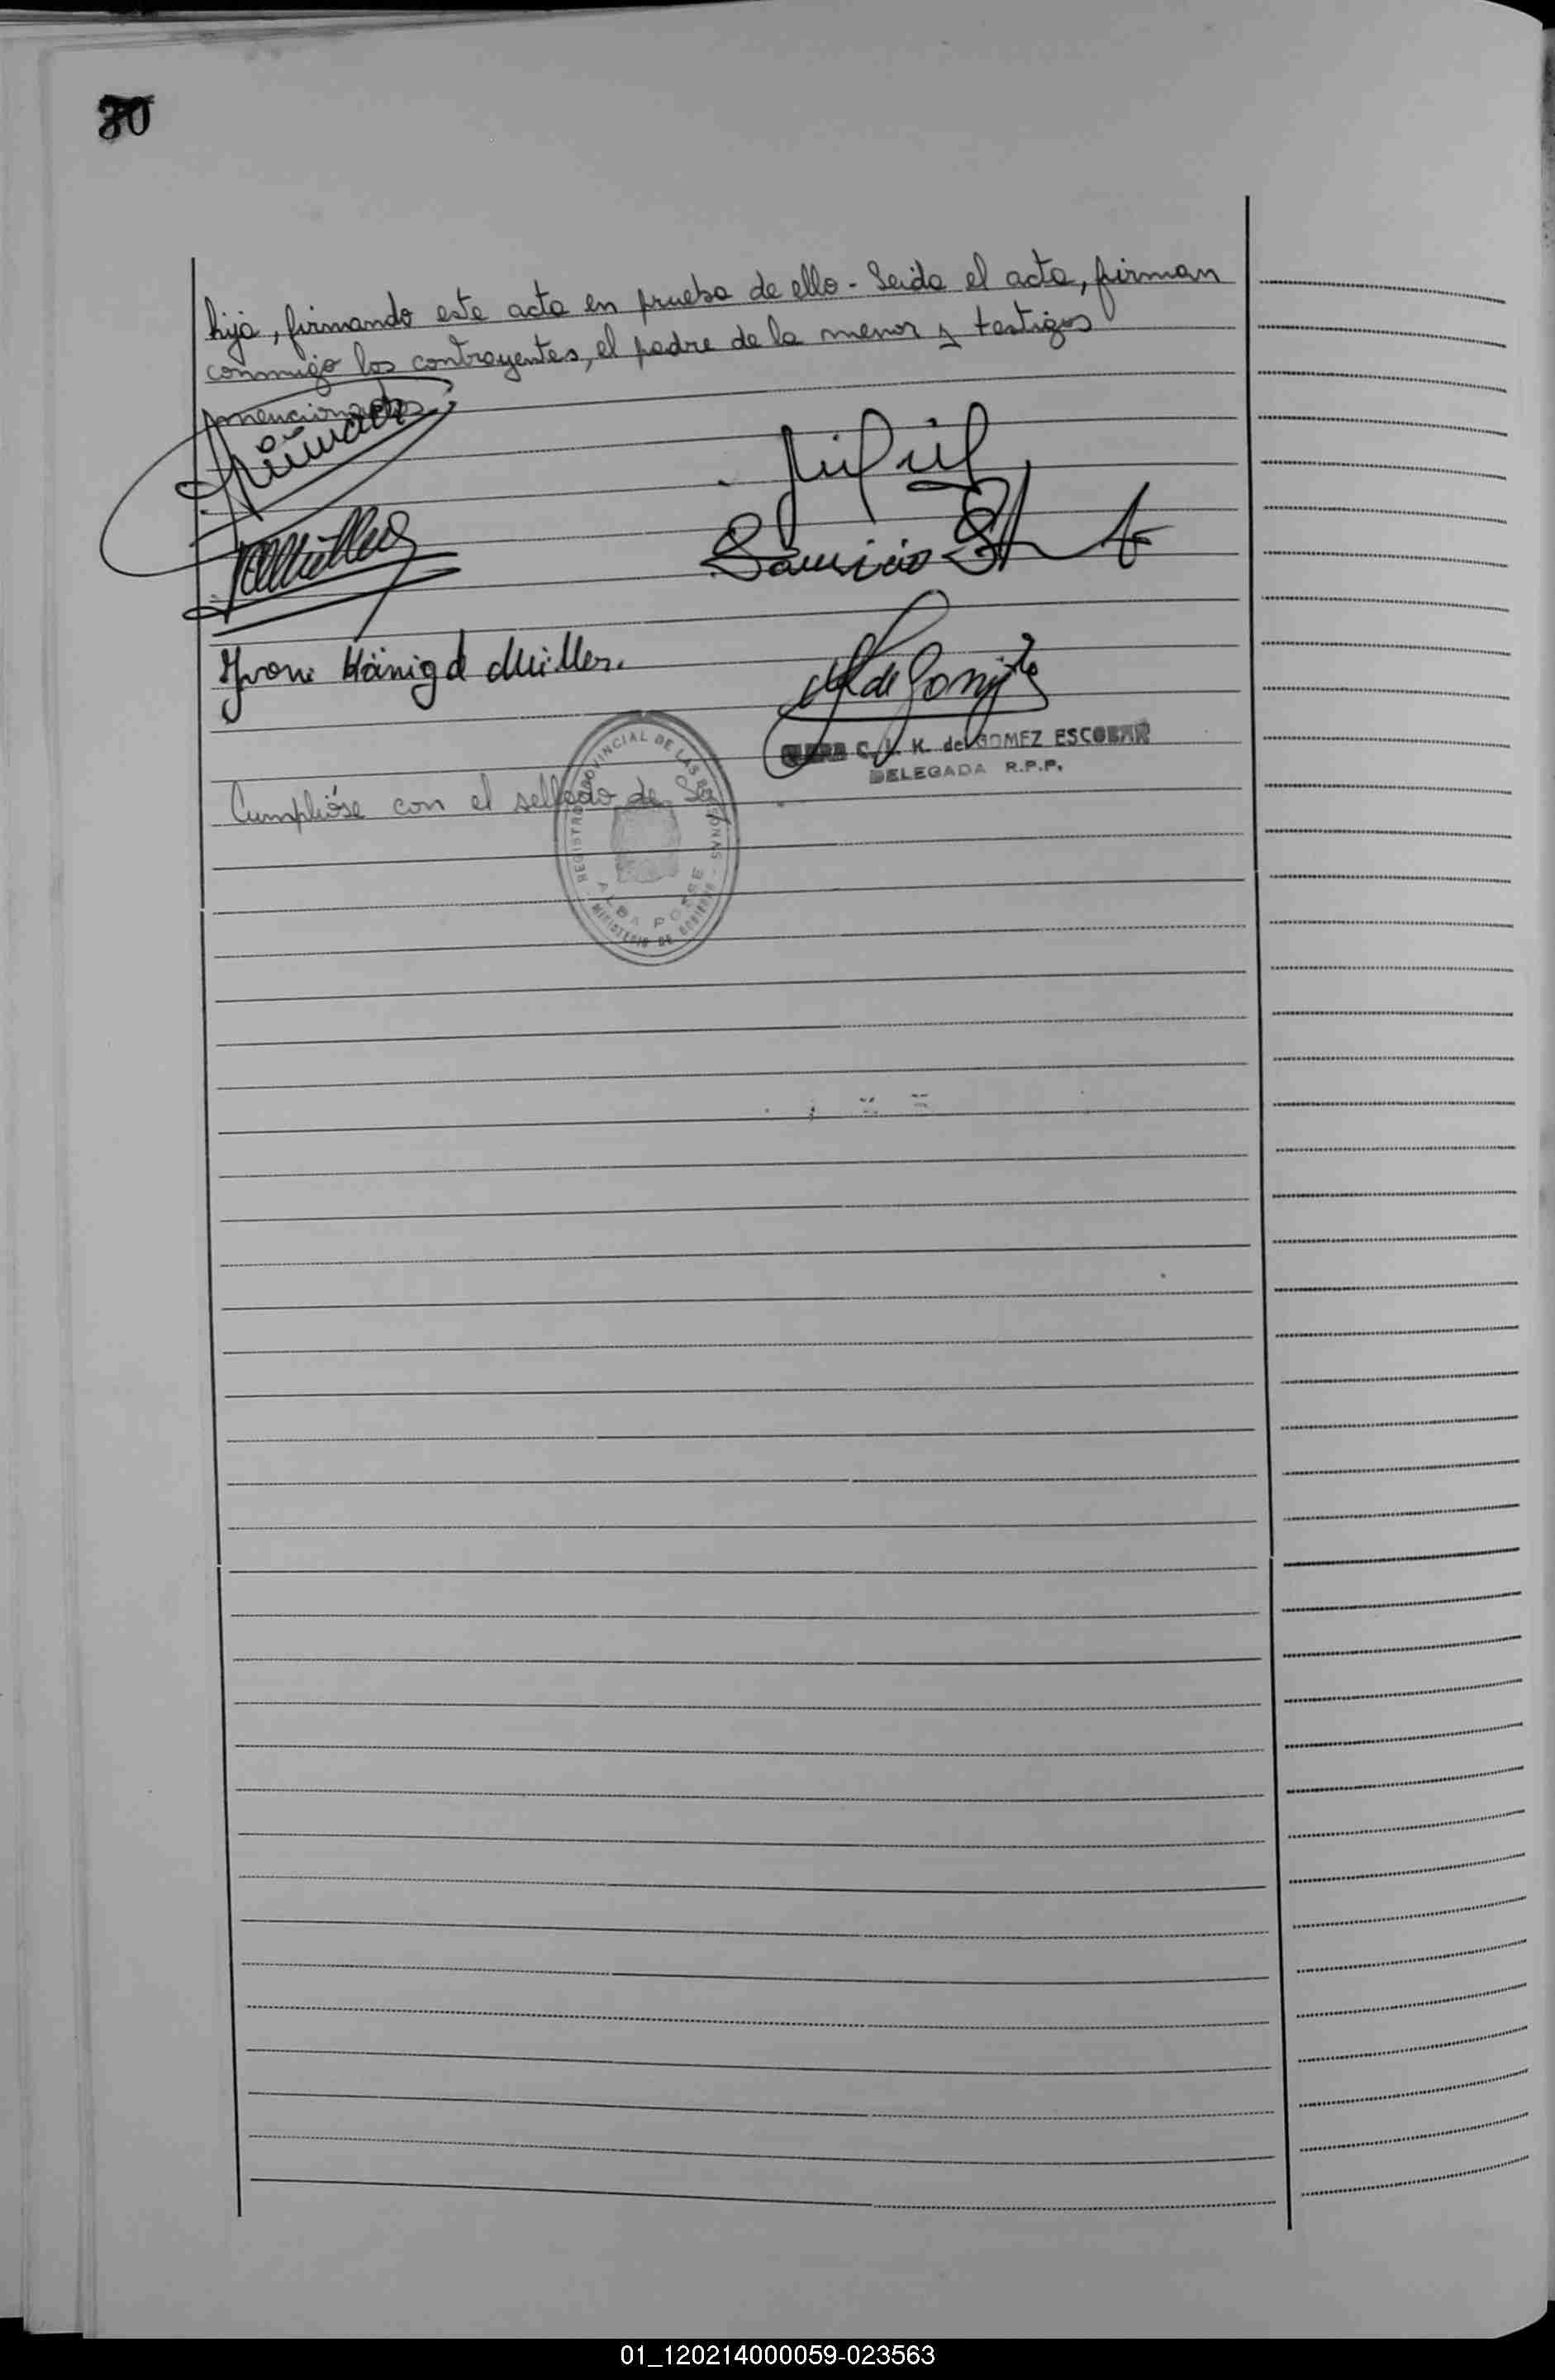 30
hija, firmando este acta en prueba de ello - Leida el acta, firman
conmigo los contrayentes, el padre de la menor y testigos
mencionados
König de Müller.
C. L. K. de GOMEZ ESCOBAR
DELEGADA R.P.P.
Cumplióse con el sellado de Ley
REGISTRO PROVINCIAL DE LAS PERSONAS
ALBA POSSE
MINISTERIO DE GOBIERNO
01_120214000059-023563